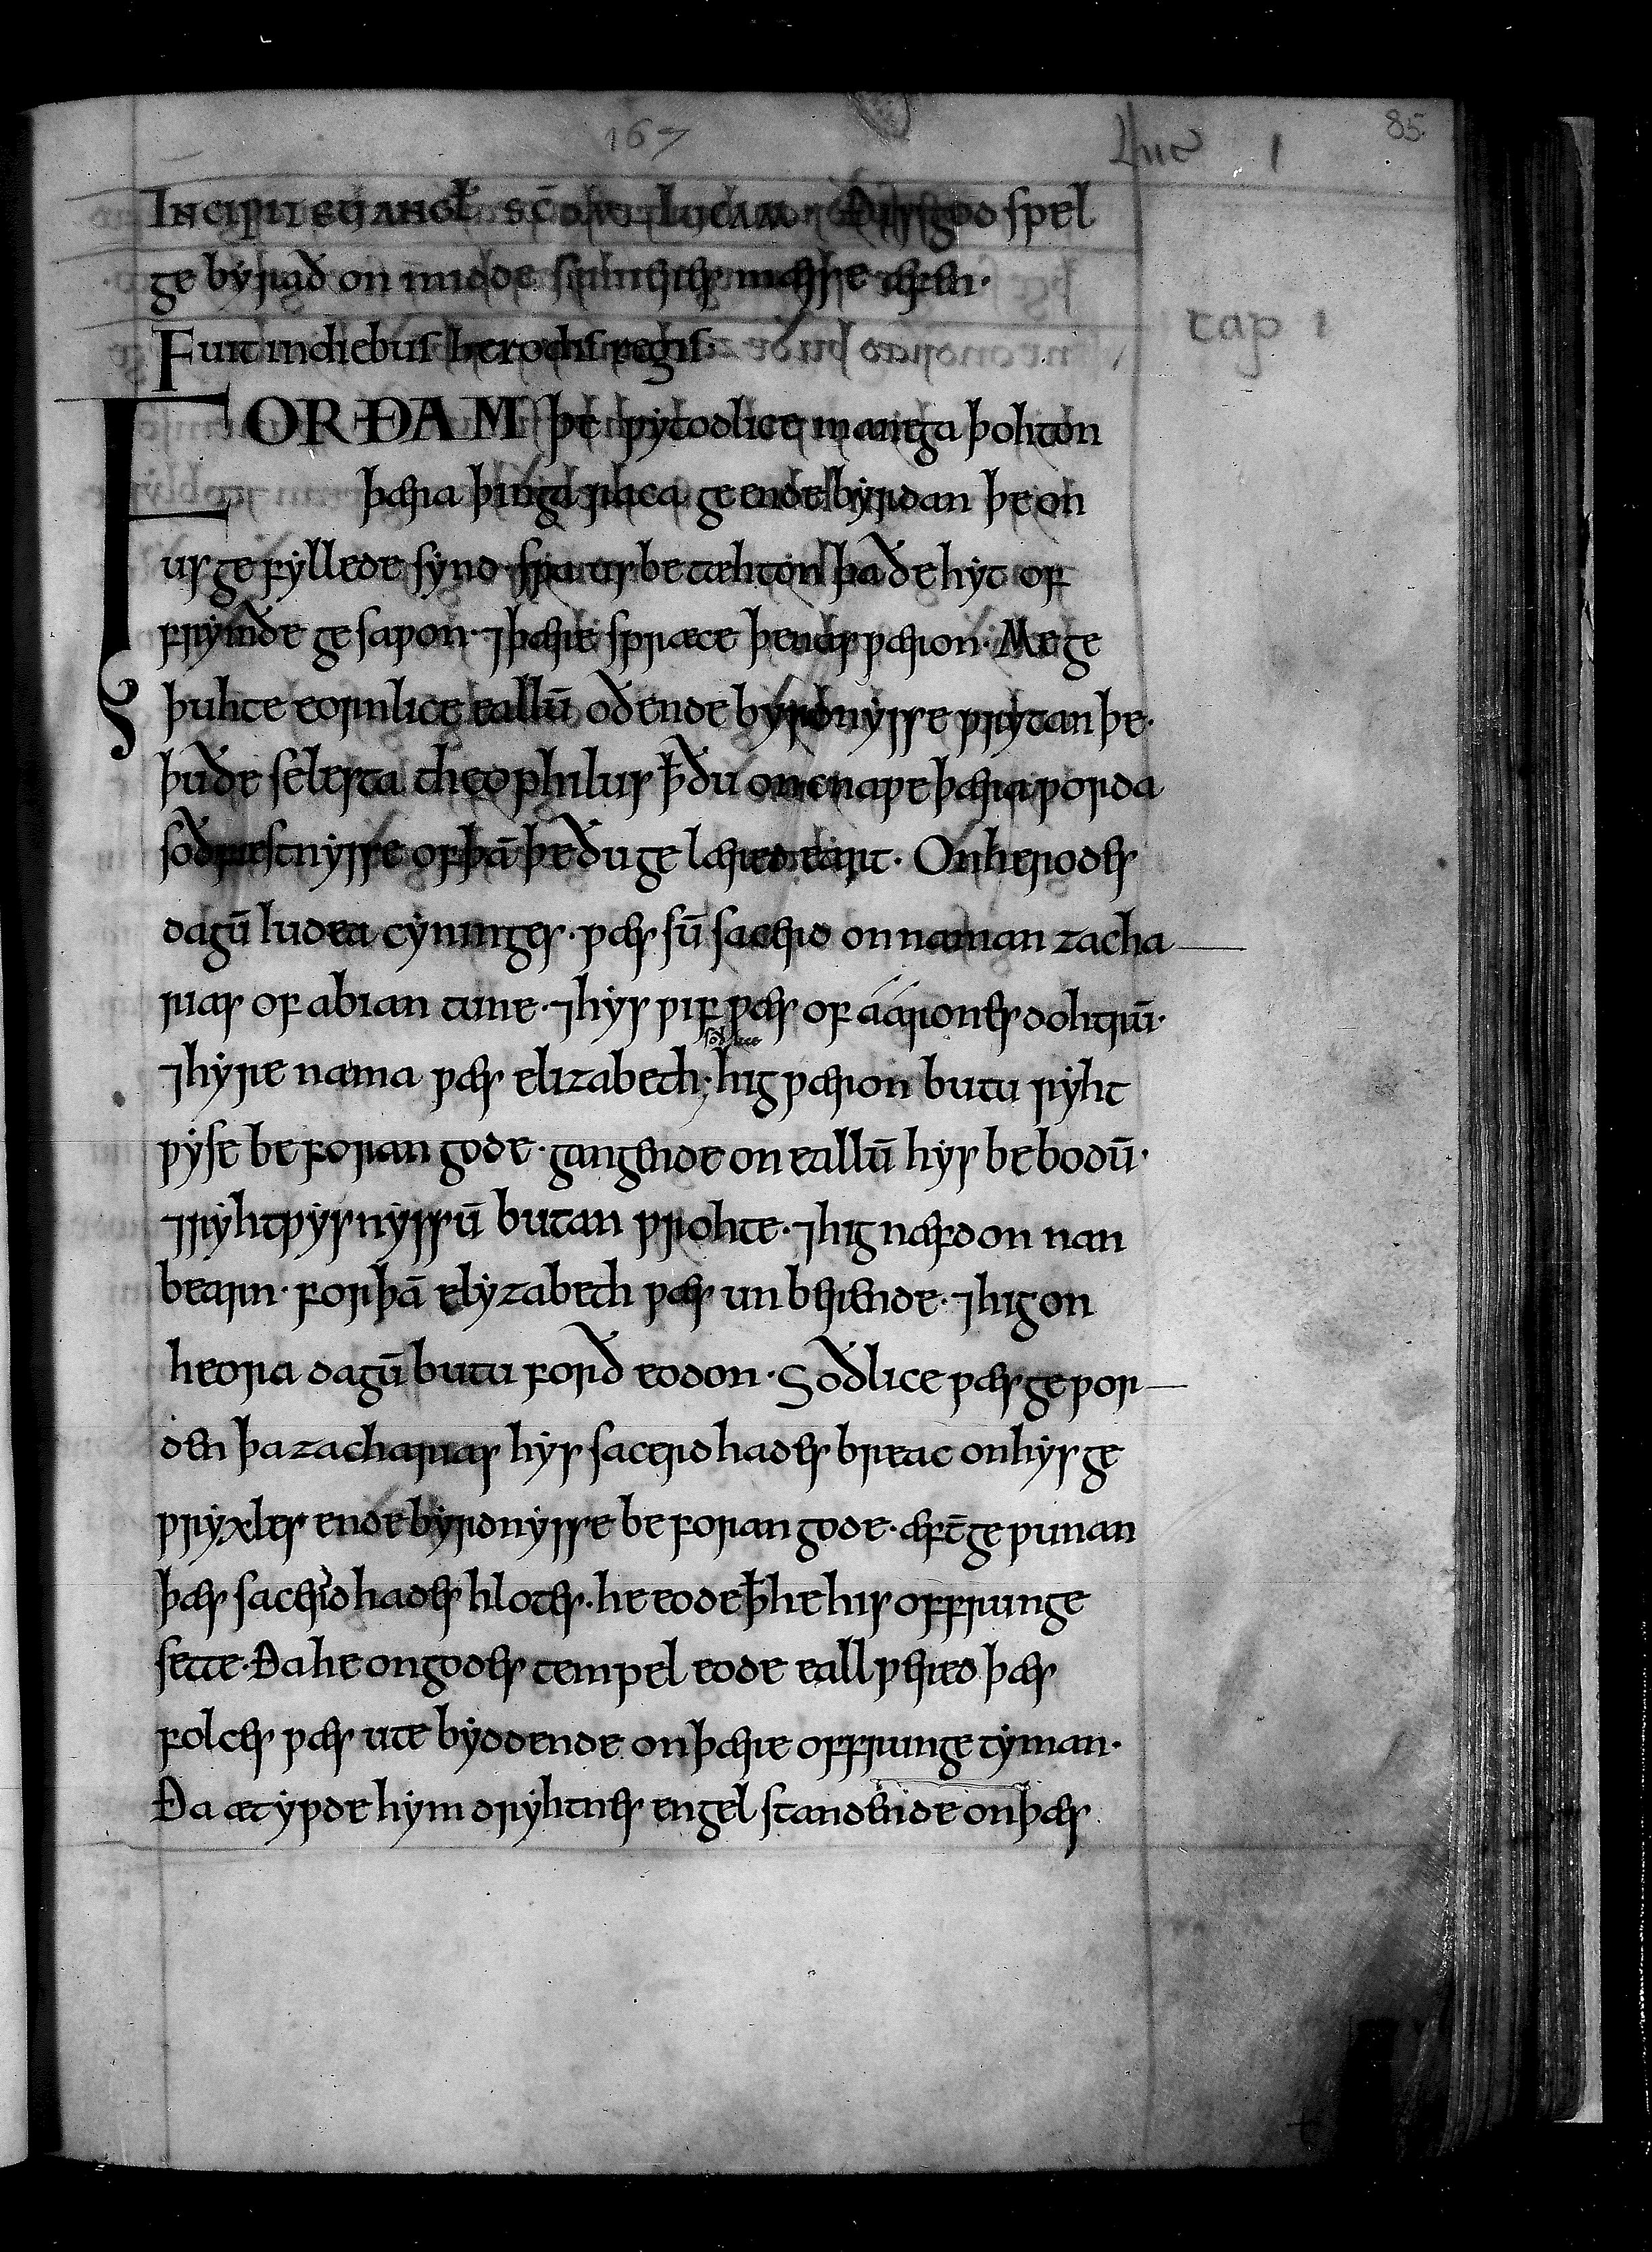 167
Luc 1
85
INCIPIT EUANGŁ SC̄DM LUCAM. Ðys godspel
ge byrað on midde sumeres mæsse æfen.
Fuit in diebus herodis regis.
FORÐAM þe ƿytodlice manega þohton
þæra þinga race ge endebyrdan þe on
us ge fyllede synd. sƿa us be tæhton þa ðe hyt of
frymðe ge saƿon. ⁊ þære spræce þenas ƿæron. Me ge
þuhte eornlice eallū oð endebyrdnysse ƿrytan þe.
þu ðe selesta theophilus ꝥ ðu oncnaƿe þæra ƿorda
soðfæstnysse of þā þe ðu ge læred eart. On herodes
dagū Iudea cyninges. ƿæs sū sacerd on naman zacha
rias of abian tune. ⁊ hys ƿif ƿæs of áárones dohtrū.
⁊ hyre nama ƿæs elizabeth. soðlice hig ƿæron butu ryht
ƿyse beforan gode. gangende on eallū hys bebodū.
⁊ ryhtƿysnyssū butan ƿrohte. ⁊ hig næfdon nan
bearn. forþā elyzabeth ƿæs unberende. ⁊ hig on
heora dagū butu forð eodon. Soðlice ƿæs geƿor
den þa zacharias hys sacerdhades breac on hys ge
ƿryxles endebyrdnysse beforan gode. æft̄ geƿunan
þæs sacerdhades hlotes. he eode ꝥ he his offrunge
sette. Ða he on godes tempel eode eall ƿered þæs
folces ƿæs ute byddende on þære offrunge tyman.
Ða ætyƿde hym dryhtnes engel standende on þæs
cap 1